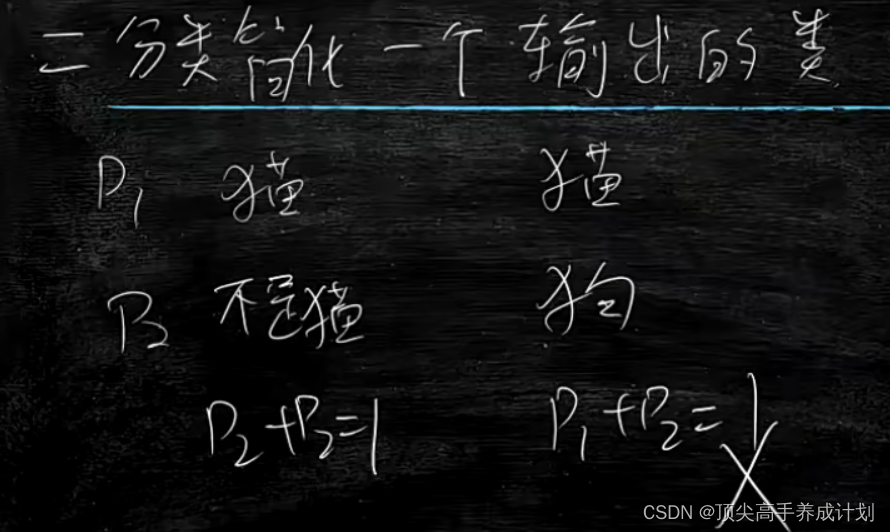 二分类简化一个输出的类
P1 猫 猫
P2 不是猫 狗
P2+P2=1 P1+P2=1 X
CSDN @顶尖高手养成计划